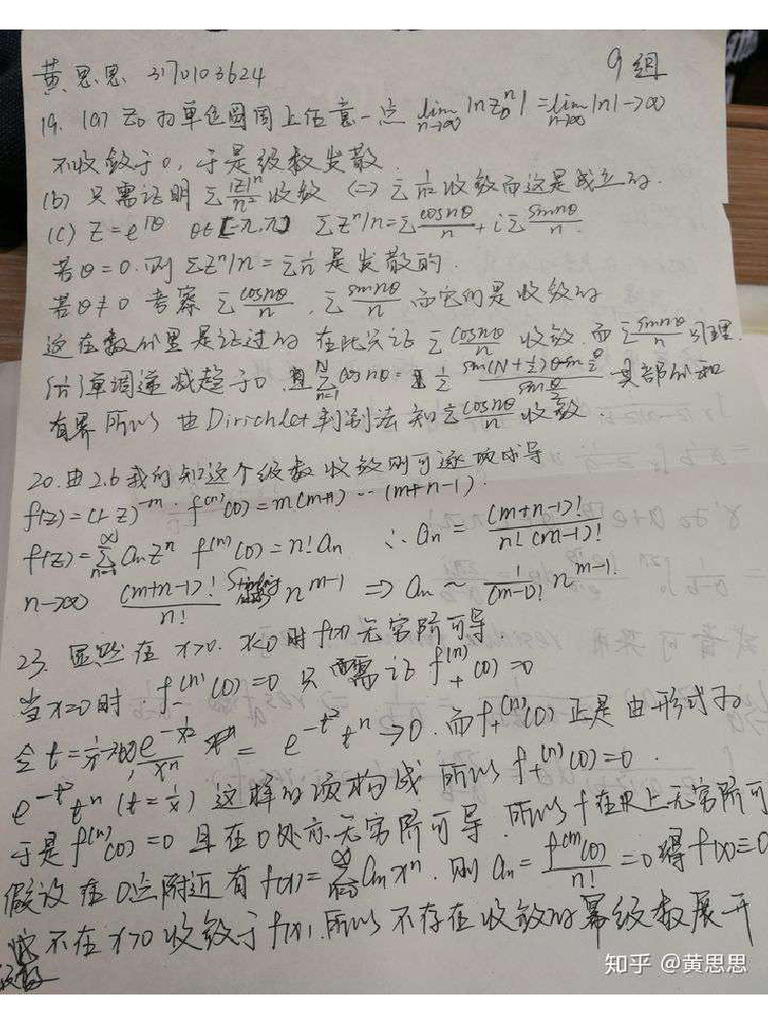 黄思思 3170103624 9组
19. (a) z₀为单位圆周上任意一点 lim_{n→∞}|nz₀ⁿ|=lim_{n→∞}|n|→∞
不收敛于0,于是级数发散.
(b) 只需证明 Σ|z|ⁿ/n² 收敛 (=) Σ 1/n² 收敛而这是成立的.
(c) z=e^{iθ} θ∈[-π,π] Σzⁿ/n=Σcosnθ/n+iΣsinnθ/n.
若θ=0.则 Σzⁿ/n=Σ1/n 是发散的.
若θ≠0 考察 Σcosnθ/n, Σsinnθ/n 而它们是收敛的
这在数分里是证过的 在此只证 Σcosnθ/n 收敛.而Σsinnθ/n 同理.
{1/n}单调递减趋于0 且Σ_{n=1}^{N}cosnθ= sin(N+1/2)θ-sinθ/2 / sinθ/2 其部分和
有界 所以由Dirichlet判别法知Σcosnθ/n 收敛.
20.由2.6我们知这个级数收敛则可逐项求导
f(z)=(1-z)^{-m}. f^{(n)}(0)=m(m+1)…(m+n-1).
f(z)=Σ_{n=1}^{∞}aₙzⁿ f^{(n)}(0)=n!aₙ ∴aₙ=(m+n-1)!/n!(m-1)!
n→∞ (m+n-1)!/n! n^{m-1} ⇒ aₙ~1/(m-1)! n^{m-1}.
23. 显然在x>0. x<0时f(x)无穷阶可导.
当x=0时.f₋^{(n)}(0)=0 只需证f₊^{(n)}(0)=0
令t=1/x→∞, e^{-1/x²}/xⁿ = e^{-t²}tⁿ→0.而f₊^{(n)}(0)正是由形式为
e^{-t²}tⁿ(t=1/x)这样的项构成 所以f₊^{(n)}(0)=0.
于是f^{(n)}(0)=0且在0处亦无穷阶可导.所以f在R上无穷阶可
假设在0点附近有f(x)=Σ^{∞}aₙxⁿ.则aₙ=f^{(n)}(0)/n!=0得f(x)=0
不在x>0收敛于f(x).所以不存在收敛的幂级数展开
级数
知乎 @黄思思